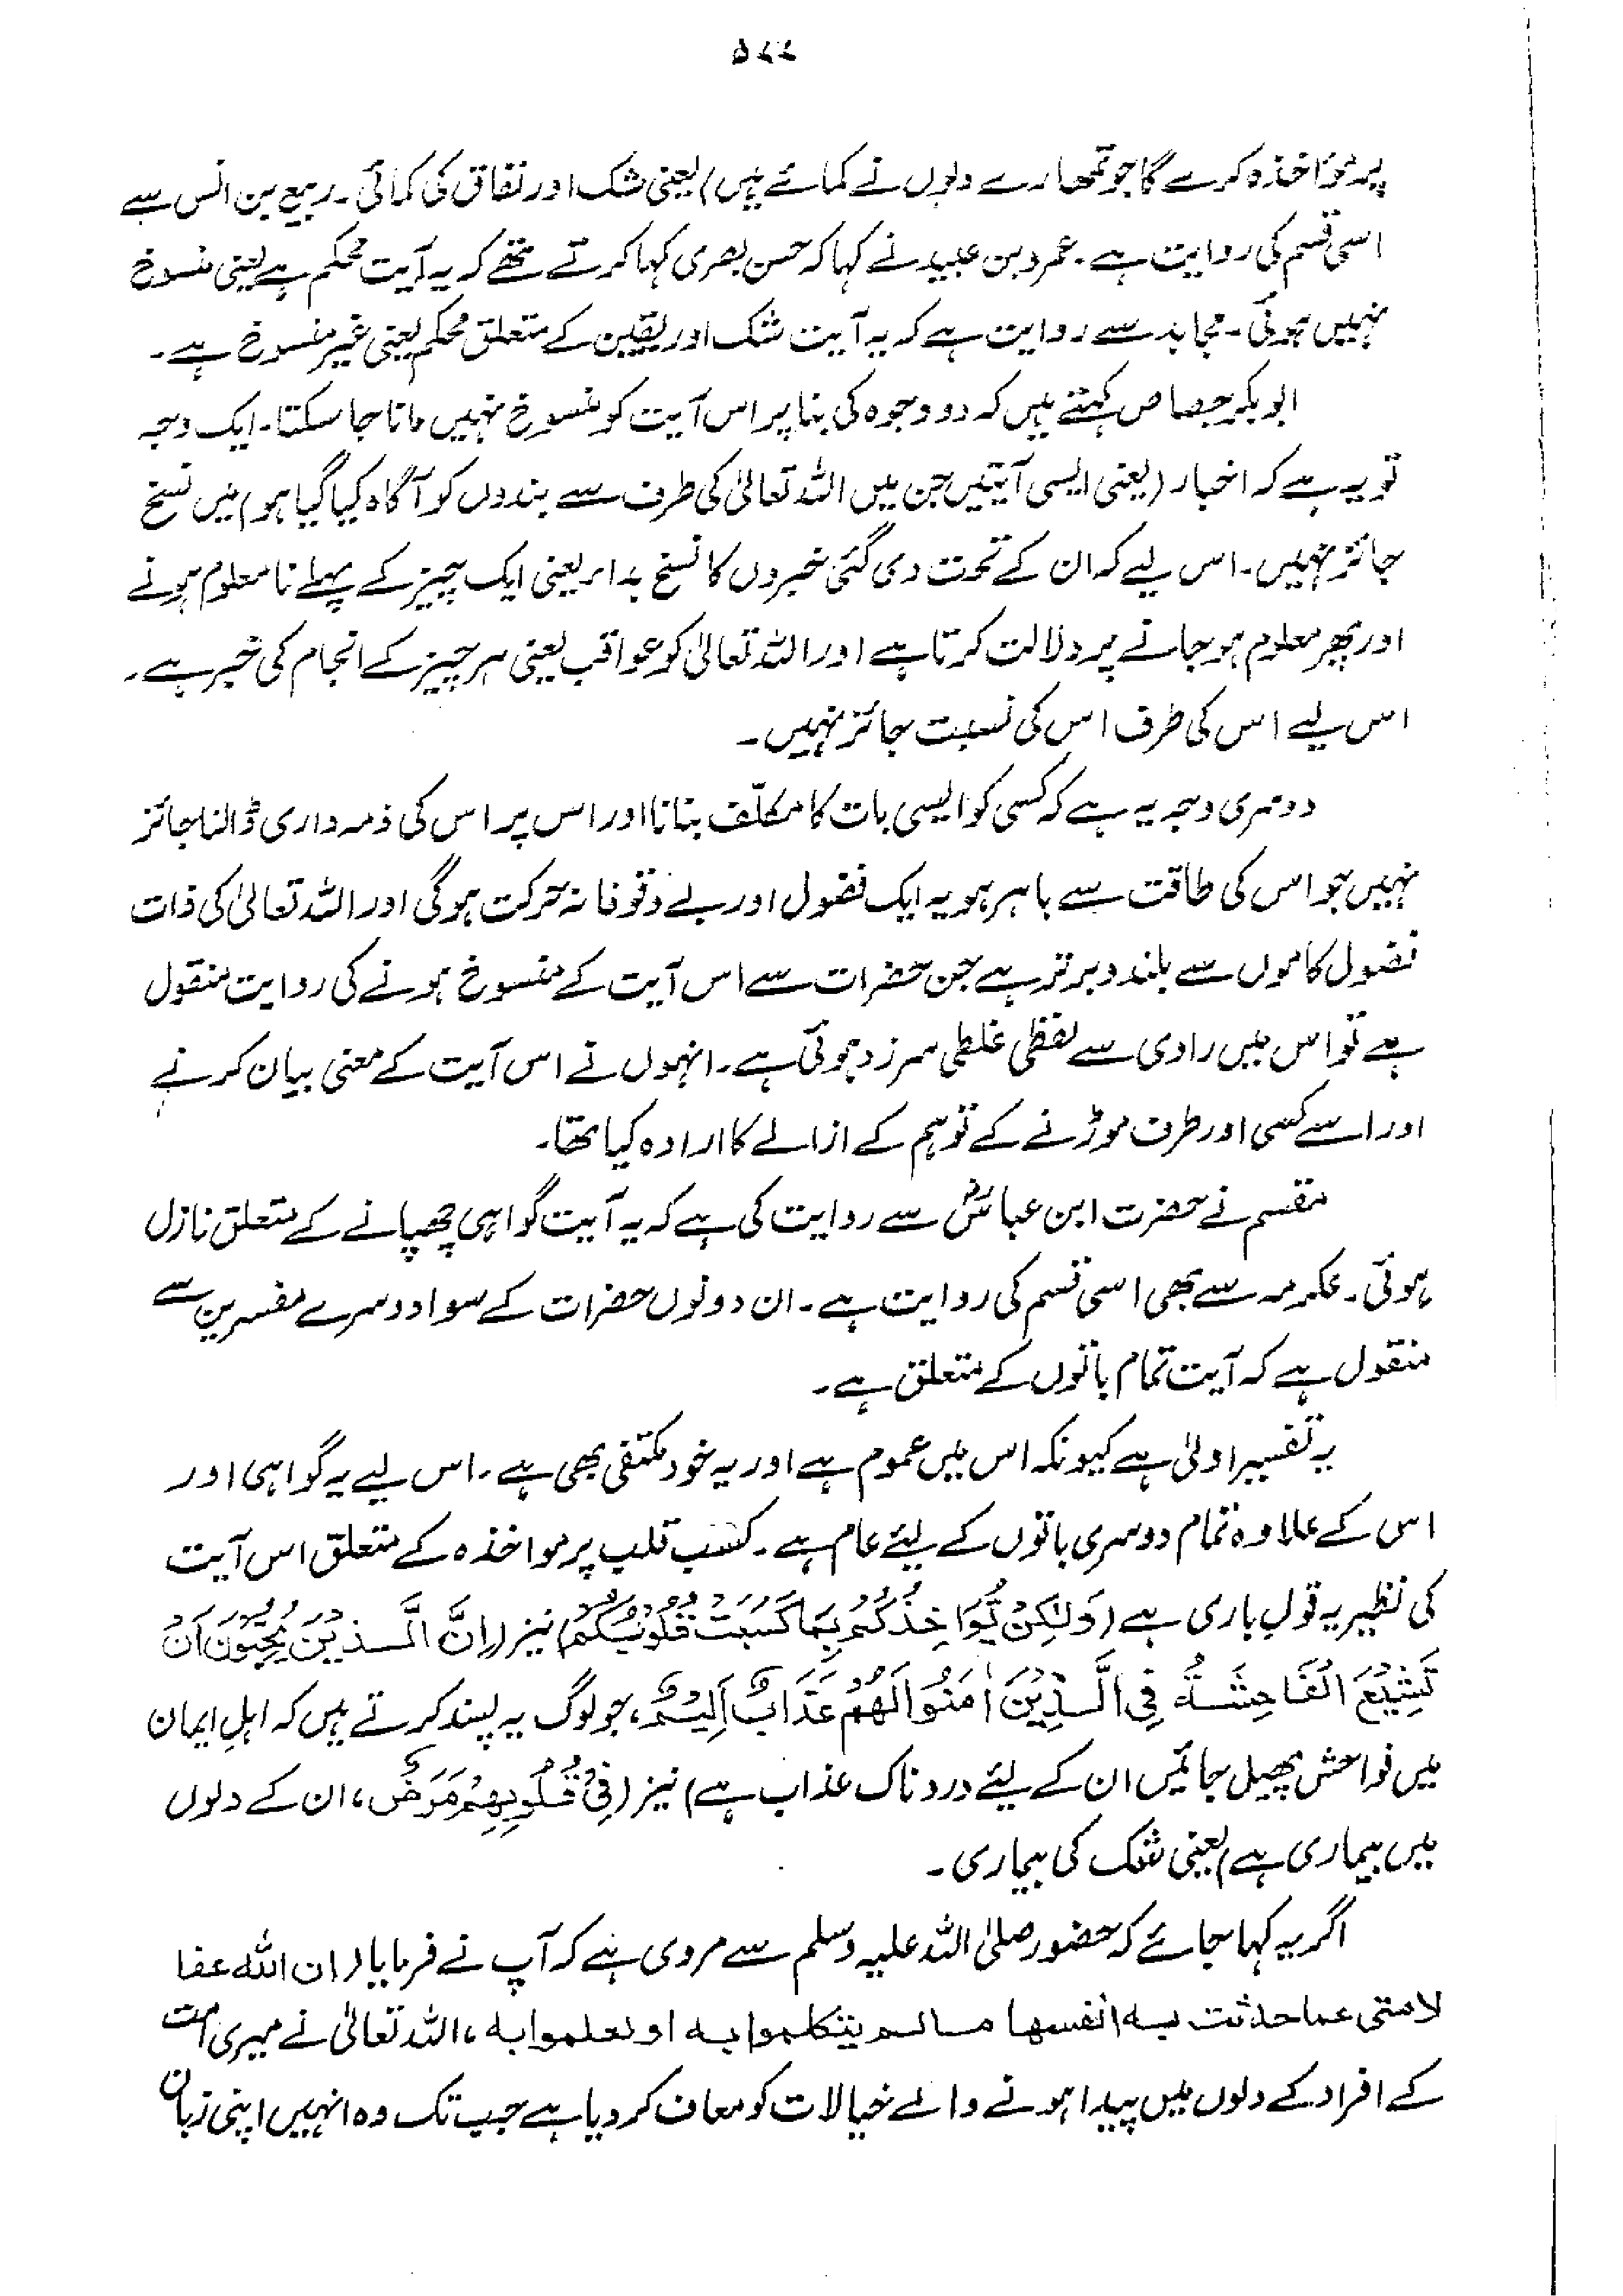 ۵۷۷
پر مؤاخذہ کرے گا جو تمھارے دلوں نے کمائے ہیں) یعنی شک اور نفاق کی کمائی۔ ربیع بن انس سے
اسی قسم کی روایت ہے۔ عمرو بن عبید نے کہا کہ حسن بصری کہا کرتے تھے کہ یہ آیت محکم ہے یعنی منسوخ
نہیں ہوئی۔ مجاہد سے روایت ہے کہ یہ آیت شک اور یقین کے متعلق محکم یعنی غیر منسوخ ہے۔
ابوبکر جصاص کہتے ہیں کہ دو وجوہ کی بنا پر اس آیت کو منسوخ نہیں مانا جا سکتا۔ ایک وجہ
تو یہ ہے کہ اخبار (یعنی ایسی آیتیں جن میں اللہ تعالیٰ کی طرف سے بندوں کو آگاہ کیا گیا ہو) میں نسخ
جائز نہیں۔ اس لیے کہ ان کے تحت دی گئی خبروں کا نسخ بداء یعنی ایک چیز کے پہلے نامعلوم ہونے
اور پھر معلوم ہو جانے پر دلالت کرتا ہے اور اللہ تعالیٰ کو عواقب یعنی ہر چیز کے انجام کی خبر ہے۔
اس لیے اس کی طرف اس کی نسبت جائز نہیں۔
دوسری وجہ یہ ہے کہ کسی کو ایسی بات کا مکلّف بنانا اور اس پر اس کی ذمہ داری ڈالنا جائز
نہیں جو اس کی طاقت سے باہر ہو یہ ایک فضول اور بے وقوفانہ حرکت ہوگی اور اللہ تعالیٰ کی ذات
فضول کاموں سے بلند و برتر ہے جن حضرات سے اس آیت کے منسوخ ہونے کی روایت منقول
ہے تو اس میں راوی سے لفظی غلطی سرزد ہوئی ہے۔ انہوں نے اس آیت کے معنی بیان کرنے
اور اسے کسی اور طرف موڑنے کے توہم کے ازالے کا ارادہ کیا تھا۔
مقسم نے حضرت ابن عباسؓ سے روایت کی ہے کہ یہ آیت گواہی چھپانے کے متعلق نازل
ہوئی۔ عکرمہ سے بھی اسی قسم کی روایت ہے۔ ان دونوں حضرات کے سوا دوسرے مفسرین سے
منقول ہے کہ آیت تمام باتوں کے متعلق ہے۔
یہ تفسیر اولیٰ ہے کیونکہ اس میں عموم ہے اور یہ خود مکتفی بھی ہے۔ اس لیے یہ گواہی اور
اس کے علاوہ تمام دوسری باتوں کے لیئے عام ہے۔ کسب قلب پر مواخذہ کے متعلق اس آیت
کی نظیر یہ قولِ باری ہے (وَلٰكِنْ يُّوَاخِذُكُمْ بِمَا كَسَبَتْ قُلُوْبُكُمْ) نیز (اِنَّ الَّذِيْنَ يُحِبُّوْنَ اَنْ
تَشِيْعَ الْفَاحِشَةُ فِى الَّذِيْنَ اٰمَنُوْا لَهُمْ عَذَابٌ اَلِيْمٌ، جو لوگ یہ پسند کرتے ہیں کہ اہلِ ایمان
میں فواحش پھیل جائیں ان کے لیئے دردناک عذاب ہے) نیز (فِىْ قُلُوْبِهِمْ مَرَضٌ، ان کے دلوں
میں بیماری ہے) یعنی شک کی بیماری۔
اگر یہ کہا جائے کہ حضور صلی اللہ علیہ وسلم سے مروی ہے کہ آپ نے فرمایا (ان الله عفا
لامتى عما حدثت به انفسها مالم يتكلموا به او يعلموا به، اللہ تعالیٰ نے میری امت
کے افراد کے دلوں میں پیدا ہونے والے خیالات کو معاف کر دیا ہے جب تک وہ انہیں اپنی زبان